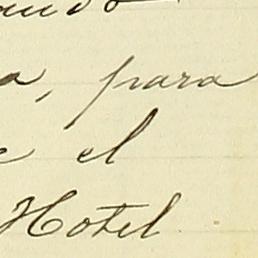 a, para
e el
Hotel